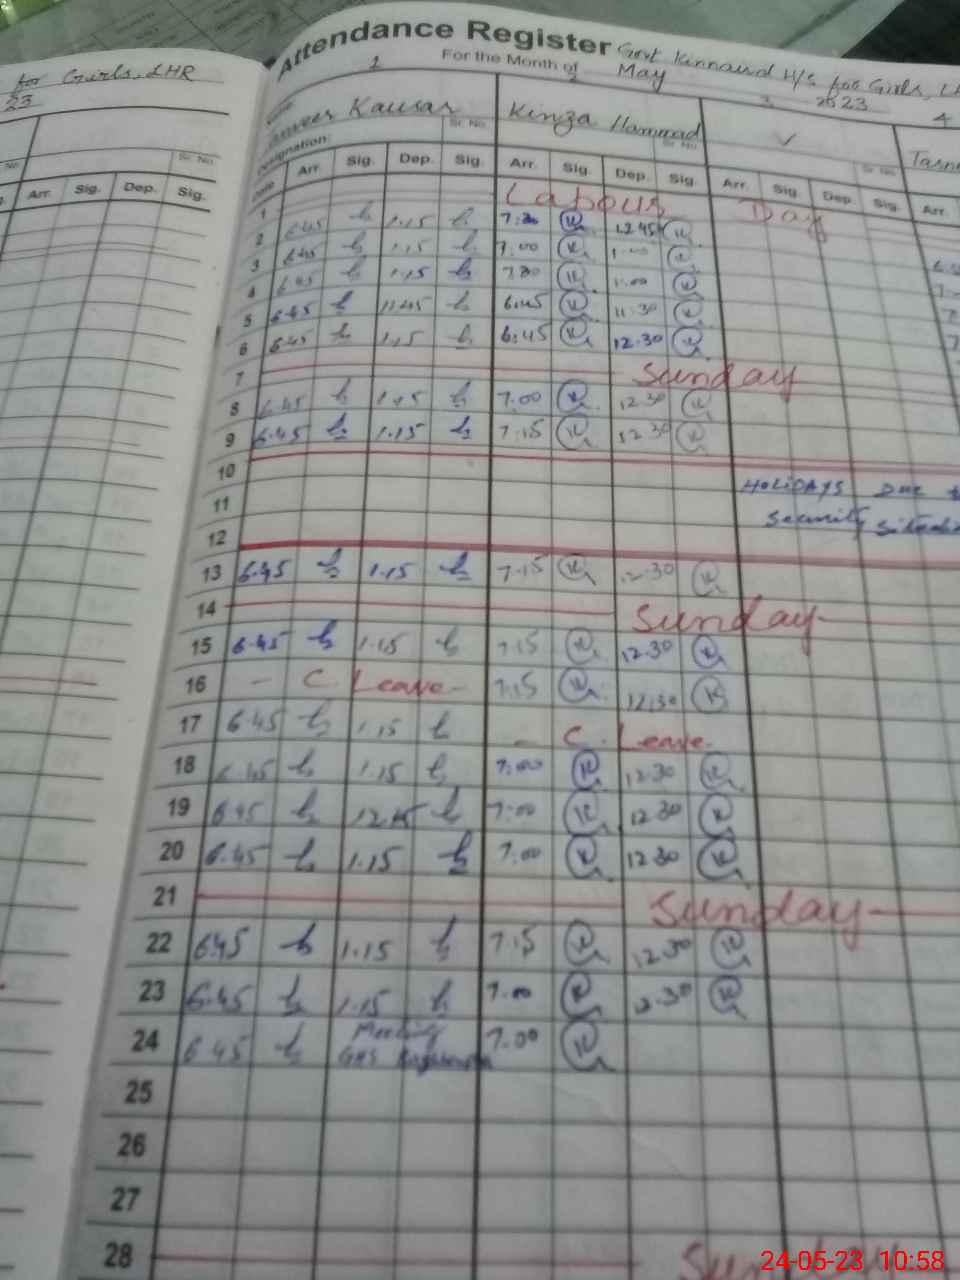 for Gurls, LHR
23
Sr. No.
No
Arr. Sig. Dep. Sig.
Attendance Register Govt Kinnaird H/S for Girls, LH
For the Month of May 2023
1 2 3 4
Kausar Kinza Hammad ✓ Tasn
Designation: Sr. No. Sr. No. Sr. No
Date Arr. Sig. Dep. Sig. Arr. Sig. Dep. Sig. Arr. Sig. Dep. Sig. Arr.
1 Labour Day
2 6.45 h 1.15 h K 12.45 K
3 6.45 h 1.15 h 7.00 K 1.00 K
4 6.45 h 1.15 h K 1.00 K
5 6.45 h 11.45 h 6.45 K 11.30 K
6 6.45 h 1.15 h 6.45 K 12.30 K
7 Sunday
8 6.45 h 1.15 h 7.00 K 12.30 K
9 6.45 h 1.15 h 7.15 K 12.30 K
10
HOLIDAYS Due
11
Security
12
13 6.45 h 1.15 h 7.15 K 12.30 K
14 Sunday
15 6.45 h 1.15 h 7.15 K 12.30 K
16 - C. Leave - 7.15 K 12.30 K
17 6.45 h 1.15 h - C. Leave.
18 6.45 h 1.15 h 7.00 K 12.30 K
19 6.45 h 12.15 h 7.00 K 12.30 K
20 6.45 h 1.15 h 7.00 K 12.30 K
21 Sunday
22 6.45 h 1.15 h 7.15 K 12.30 K
23 6.45 h 1.15 h 7.00 K 12.30 K
24 6.45 h Meeting 7.00 K
GHS
25
26
27
28 Sunday
24-05-23 10:58